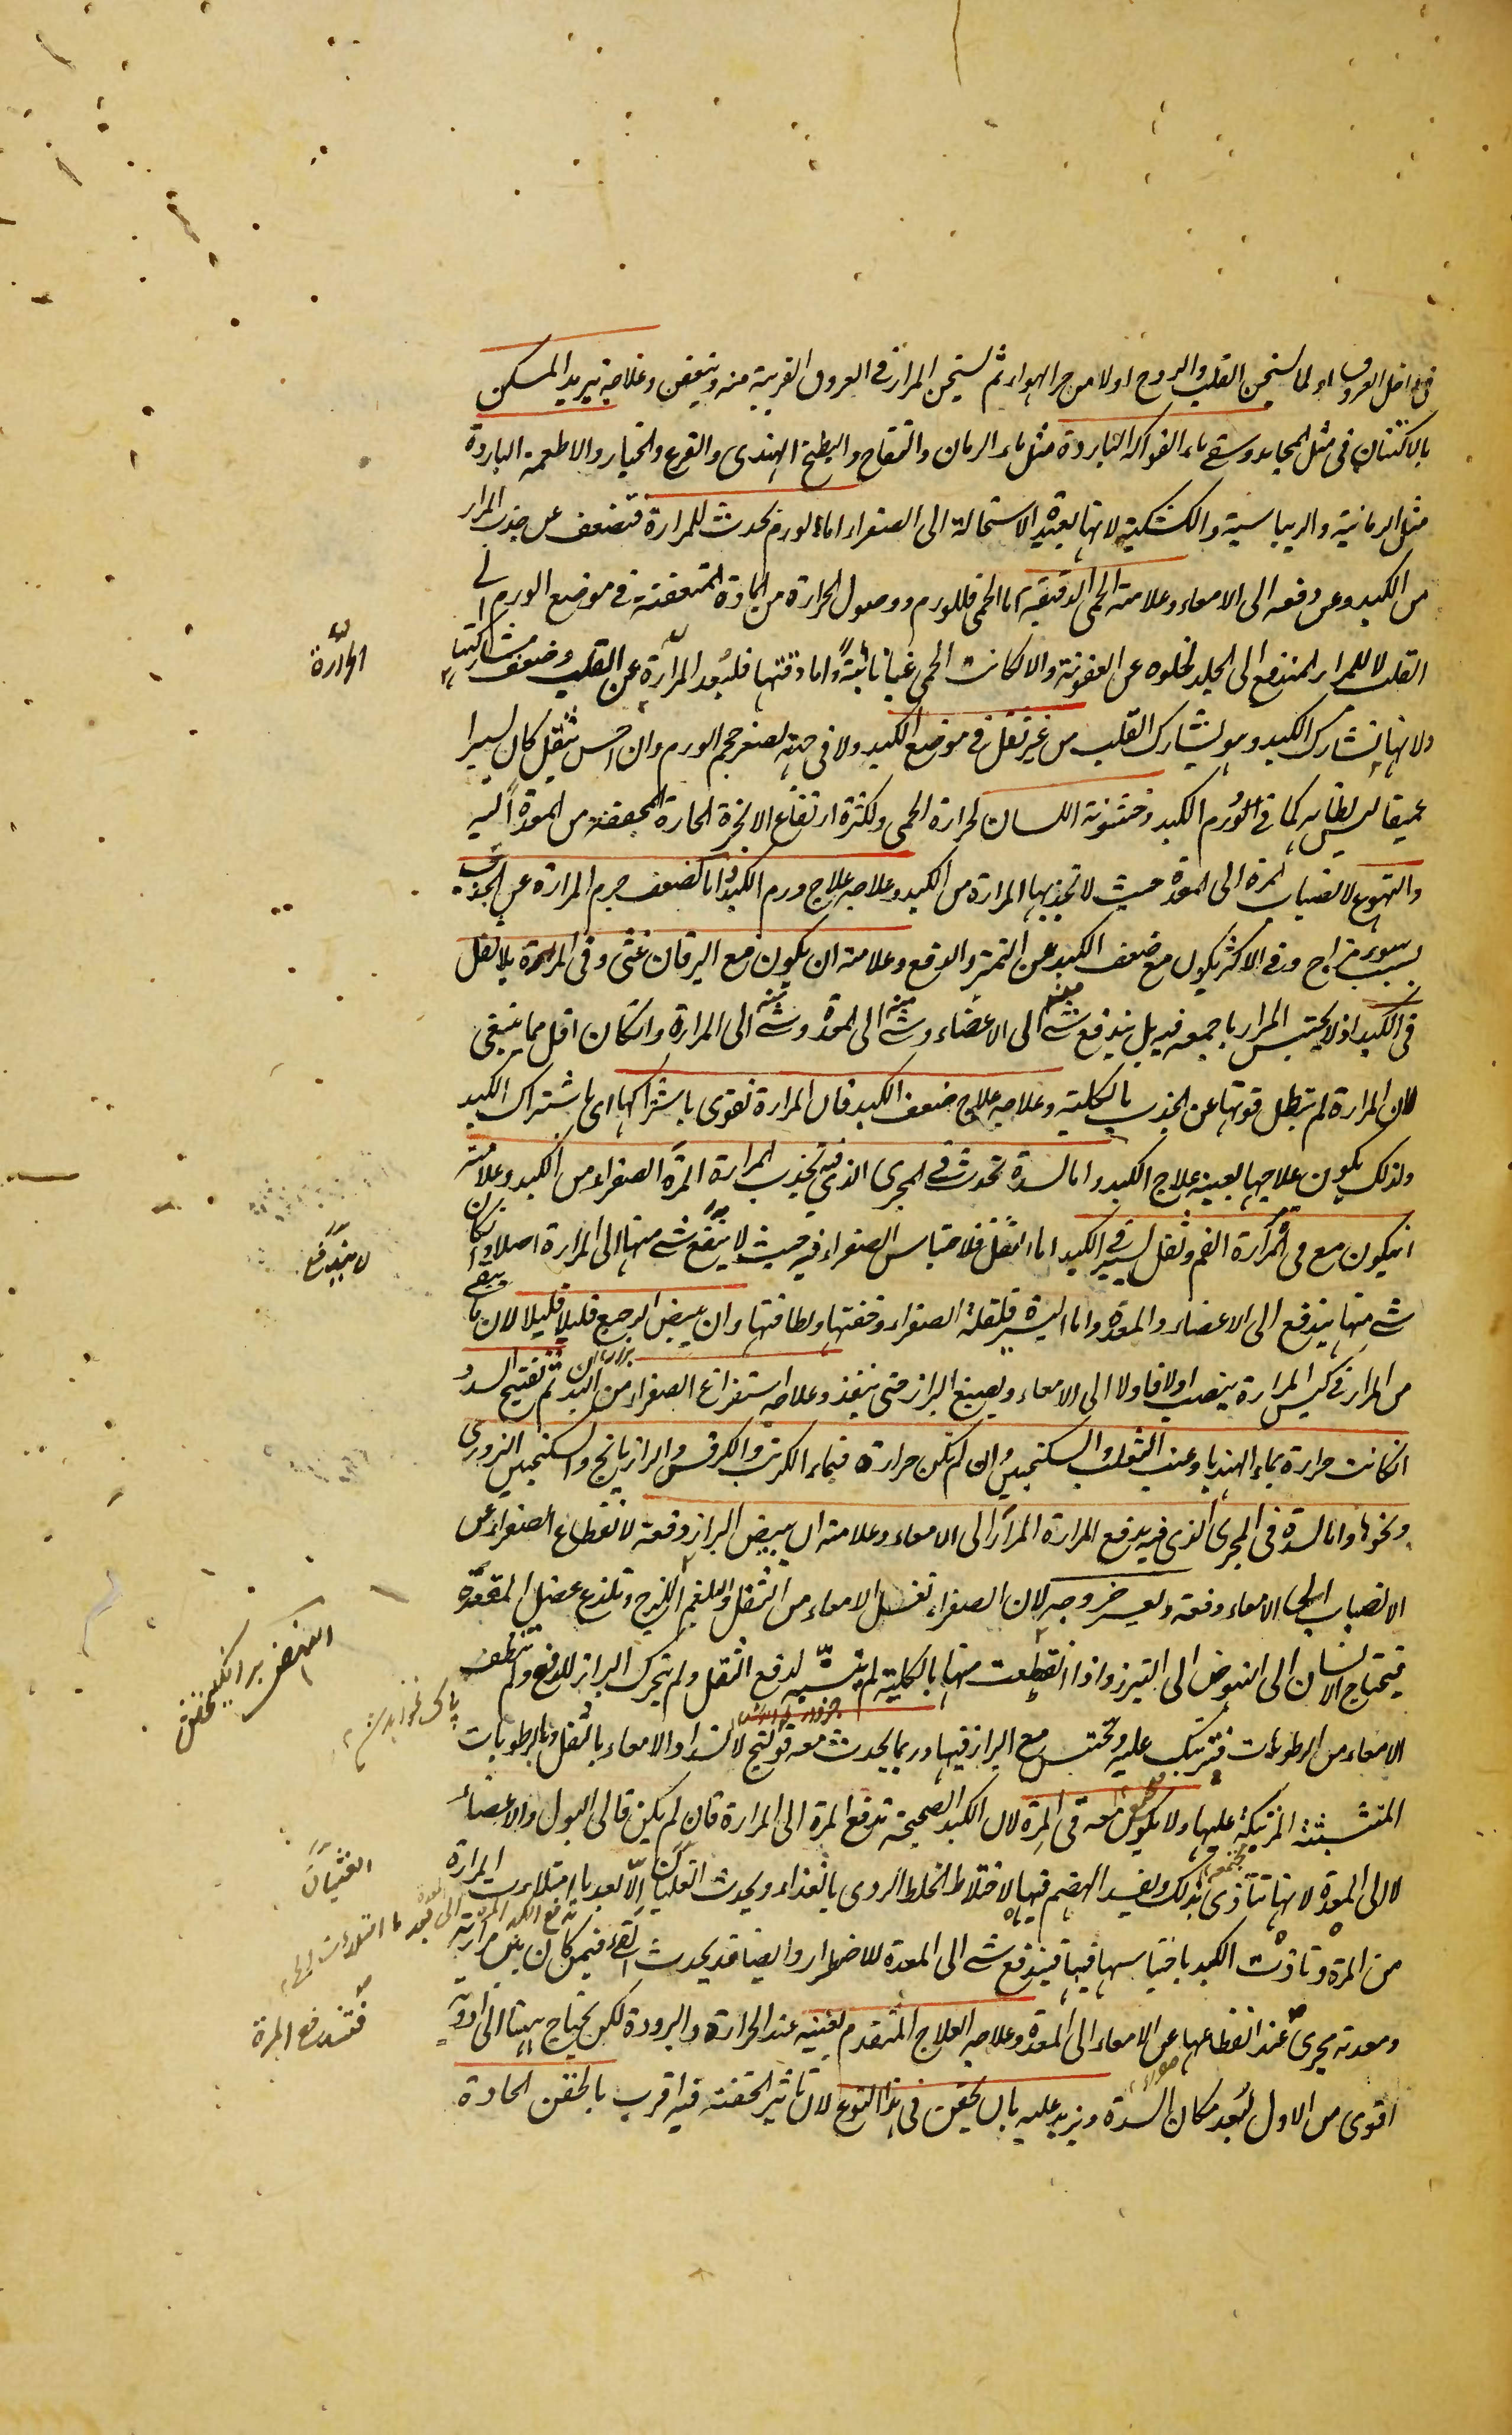 في داخل العروق او لما يسخن القلب والروح اولا من حر الهواء ثم يسخن المرار في العروق القريبة منه ويتعفن وعلاجه تبريد المسكن
بالاكتنان في مثل المجامد وسقي ماء الفواكه الباردة مثل ماء الرمان والتفاح والبطيخ الهندي والقرع والخيار والاطعمة الباردة
مثل الرمانية والريباسية والكشكية لانها بعيدة الاستحالة الى الصفراء اما لورم يحدث للمرارة فتضعف عن جذب المرار
من الكبد وعن دفعه الى الامعاء وعلامته الحمى الدقيقة اما الحمى فللورم ووصول الحرارة من المادة المتعفنة في موضع الورم الى
القلب لا للمرار المندفع الى الجلد لخلوه عن العفونة والا لكانت الحمى غبا نائبة واما دقتها فلبعد المرارة عن القلب وضعف مشاركتها
ولانها تشارك الكبد وهو يشارك القلب من غير ثقل في موضع الكبد ولا في جنبه لصغر حجم الورم وان احس بثقل كان يسيرا
عميقا ليس بظاهر كما في تورم الكبد وخشونة اللسان لحرارة الحمى ولكثرة ارتفاع الابخرة الحارة المجففة من المعدة اليه
والتهوع لانصباب المرة الى المعدة حيث لا تجذبها المرارة من الكبد وعلاجه علاج ورم الكبد واما لضعف جرم المرارة عن الجذب
بسبب سوء مزاج وفي الاكثر يكون مع ضعف الكبد عن التميز والدفع وعلامته ان يكون مع اليرقان غثى وقى المرة بلا ثقل
في الكبد اذ لا يحتبس المرار باجمعه فيه بل يندفع شي منه الى الاعضاء وشي منه الى المعدة وشي منه الى المرارة وان كان اقل مما ينبغي
لان المرارة لم تبطل قوتها عن الجذب بالكلية وعلاجه علاج ضعف الكبد فان المرارة تقوى باشتراكها اى باشتراك الكبد
ولذلك يكون علاجها بعينه علاج الكبد واما لسدة تحدث في المجرى الذي فيه تجذب المرارة المرة الصفراء من الكبد وعلامته
ان يكون مع قى المرة مرارة الفم وثقل يسير في الكبد اما الثقل فلاحتباس الصفراء فيه حيث لا يندفع شي منها الى المرارة اصلا وان كان
شي منها يندفع الى الاعضاء والمعدة واما اليسير فلقلة الصفراء وخفتها ولطافتها وان يبيض الرجيع قليلا قليلا لان ما يبقى
من المرار في كيس المرارة ينصب اولا فاولا الى الامعاء ويصبغ البراز حتى ينفذ وعلاجه استفراغ الصفراء من البدن ثم تفتيح السدد
ان كانت حرارة بماء الهندبا وعنب الثعلب والسكنجبين وان لم تكن حرارة فبماء الكرنب والكرفس والرازيانج والسكنجبين البزوري
ونحوها واما لسدة في المجرى الذي فيه يدفع المرارة المرار الى الامعاء وعلامته ان يبيض البراز دفعة لانقطاع الصفراء عن
الانصباب الى الامعاء دفعة ويعسر خروجه لان الصفراء تغسل الامعاء من الثفل والبلغم اللزج وتلذع عضل المقعدة
فيحتاج الانسان الى النهوض الى التبرز واذا انقطعت منها بالكلية لم يتنبه لدفع الثفل ولم يتحرك البراز للدفع ولم تنظف
الامعاء من الرطوبات فترتبك عليه وتحتبس مع البراز فيها وربما يحدث معه قولنج لانسداد الامعاء بالثفل وبالرطوبات
المتشبثة المرتبكة عليها ولا يكون معه قى المرة لان الكبد الصحيحة تدفع المرة الى المرارة فان لم يكن فالى البول والاعضاء
لا الى المعدة لانها تتاذى بذلك ويفسد الهضم فيها لاختلاط الخلط الردى بالغذاء ويحدث الغثيان الا بعد ما امتلاءت المرارة
من المرة وتاذت الكبد باحتباسها فيها فيندفع شي الى المعدة للاضطرار وايضا قد يحدث القى فيمن كان بين مرارته
ومعدته مجرى عند انقطاعها عن الامعاء الى المعدة وعلاجه العلاج المتقدم بعينه عند الحرارة والبرودة لكن يحتاج ههنا الى ادوية
اقوى من الاول لبعد مكان السدة ويزيد عليه بان يحقن في هذا النوع لان تاثير الحقنة فيه اقرب بالحقن الحادة
المرارة
لا يندفع
الغثيان
فتندفع المرة